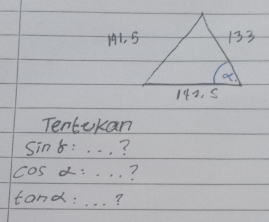 141,5
133
α
142,5
Tentukan
sin γ: ...?
cos α: ...?
tan α: ...?